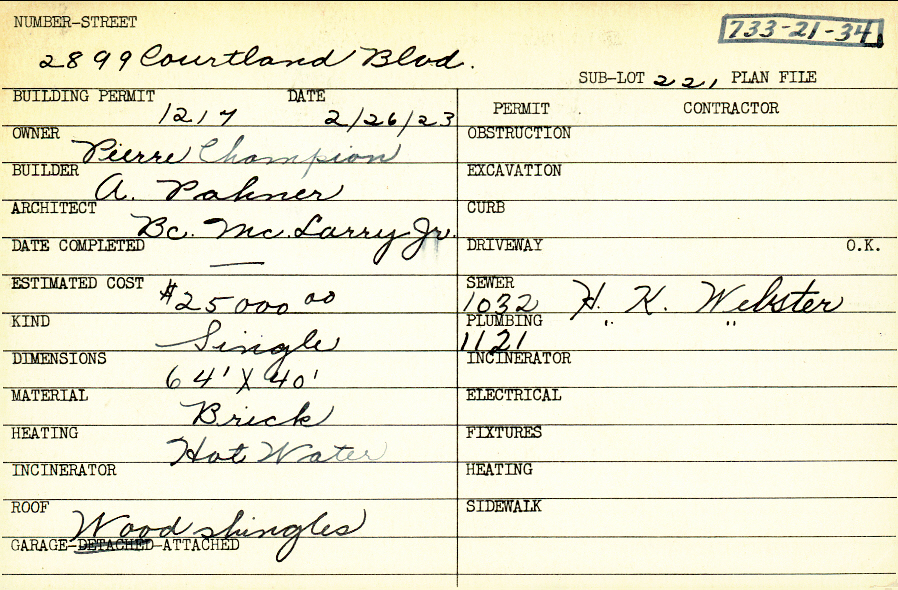 NUMBER-STREET
733-21-34
2899 Courtland Blvd.
SUB-LOT 221 PLAN FILE
BUILDING PERMIT DATE
1217 2/26/23
PERMIT CONTRACTOR
OWNER Pierre Champion
OBSTRUCTION
BUILDER A. Pahner
EXCAVATION
ARCHITECT Bc. Mc. Larry Jr.
CURB
DATE COMPLETED —
DRIVEWAY O.K.
ESTIMATED COST $25000 00
SEWER
1032 H. K. Webster
KIND Single
PLUMBING " "
1121
DIMENSIONS 64' X 40'
INCINERATOR
MATERIAL Brick
ELECTRICAL
HEATING Hot Water
FIXTURES
INCINERATOR
HEATING
ROOF Wood shingles
SIDEWALK
GARAGE-DETACHED-ATTACHED